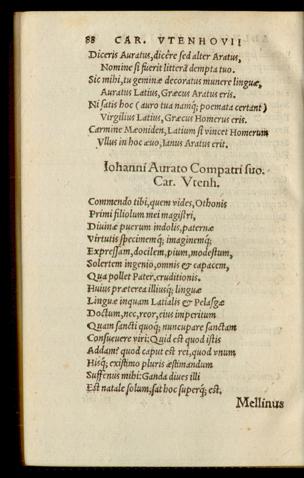 88 CAR. VTENHOVII
Diceris Auratus, dicêre sed alter Aratus,
Nomine si fuerit litterâ dempta tuo.
Sic mihi, tu geminæ decoratus munere linguæ,
Auratus Latius, Græcus Aratus eris.
Ni satis hoc (auro tua namq; poemata certant)
Virgilius Latius, Græcus Homerus eris.
Carmine Mæoniden, Latium si vincet Homerum
Vllus in hoc æuo, Ianus Aratus erit.
Iohanni Aurato Compatri suo.
Car. Vtenh.
Commendo tibi, quem vides, Othonis
Primi filiolum mei magistri,
Diuinæ puerum indolis, paternæ
Virtutis specimemq; imaginemq;
Expressam, docilem, pium, modestum,
Solertem ingenio, omnis & capacem,
Qua pollet Pater, eruditionis.
Huius præterea illiusq; linguæ
Linguæ inquam Latialis & Pelasgæ
Doctum, nec, reor, eius imperitum
Quam sancti quoq; nuncupare sanctam
Consueuere viri: Quid est quod istis
Addam? quod caput est rei, quod vnum
Hisq; existimo pluris æstimandum
Suffenus mihi: Ganda diues illi
Est natale solum, sat hoc superq; est.
Mellinus